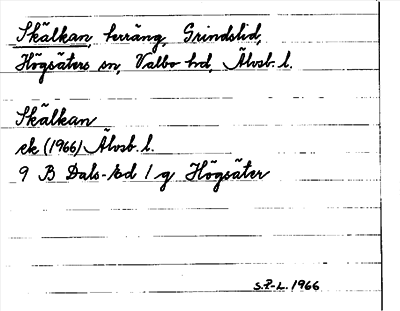 Skälkan, terräng, Grindslid,
Högsäters sn, Valbo hd, Älvsb. l.
Skälkan
ek (1966) Älvsb. l.
9 B Dals-Ed 1 g Högsäter
S.F-L. 1966